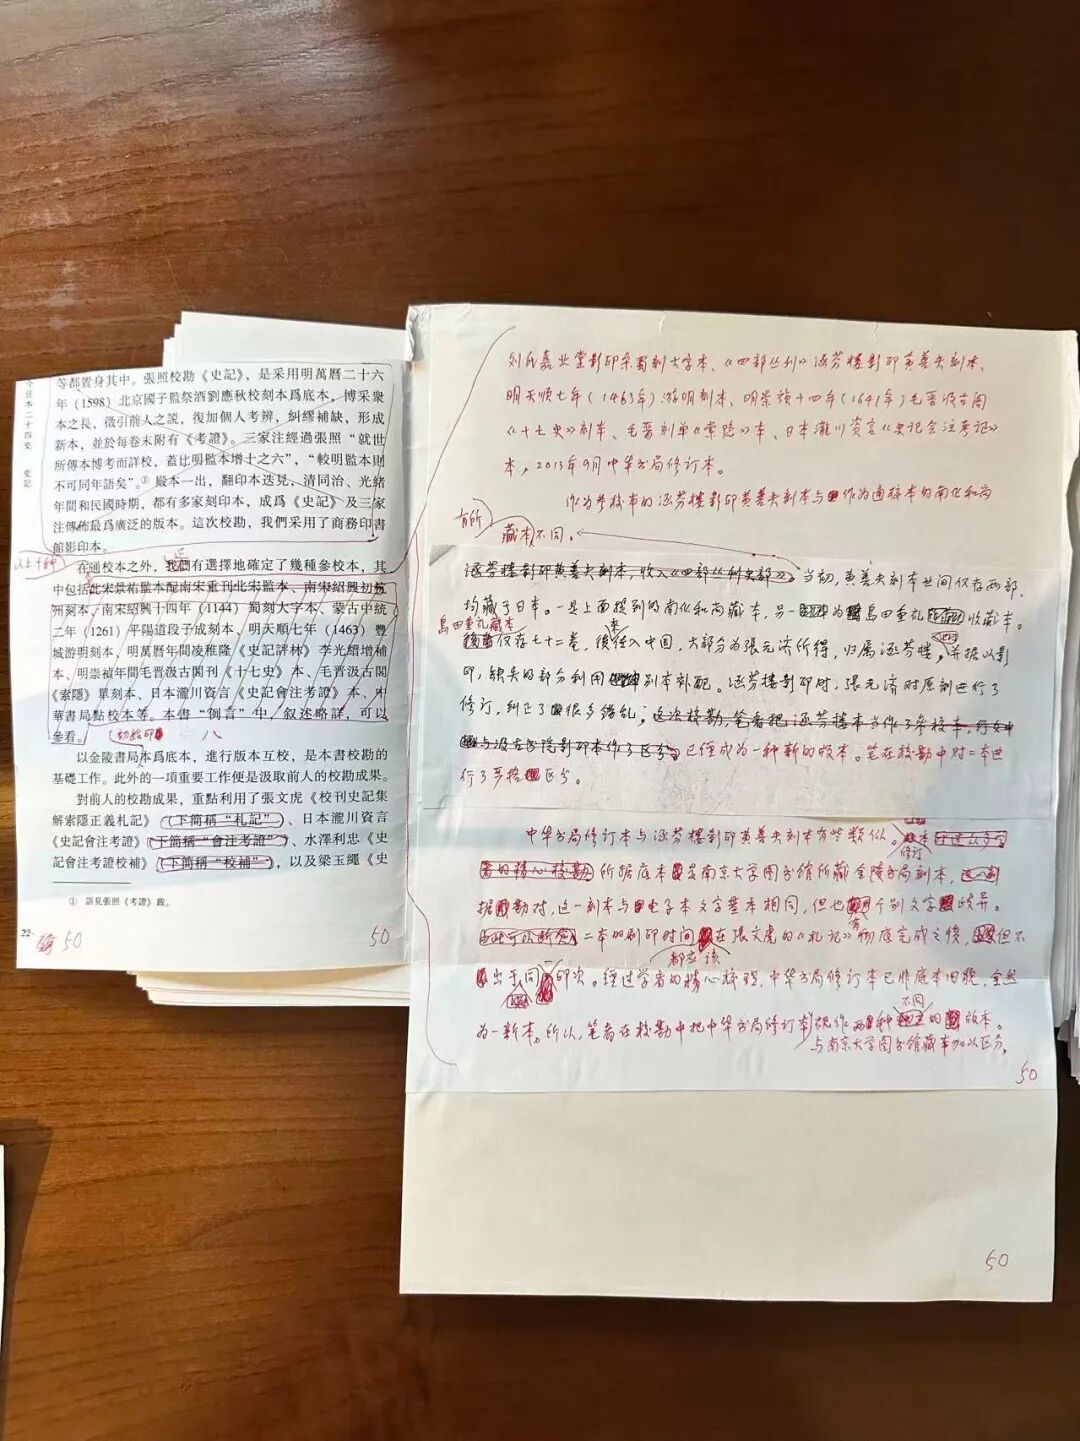 今注本二十四史　史記
等都置身其中。張照校勘《史記》，是采用明萬曆二十六
年（1598）北京國子監祭酒劉應秋校刻本爲底本，博采衆
本之長，徵引前人之説，復加個人考辨，糾繆補缺，形成
新本，並於每卷末附有《考證》。三家注經過張照“就世
所傳本博考而詳校，蓋比明監本增十之六”，“較明監本則
不可同年語矣”。① 殿本一出，翻印本迭見，清同治、光緒
年間和民國時期，都有多家刻印本，成爲《史記》及三家
注傳佈最爲廣泛的版本。這次校勘，我們采用了商務印書
館影印本。
以上十種
在通校本之外，我們有選擇地確定了幾種參校本，其
中包括北宋景祐監本配南宋重刊北宋監本、南宋紹興初杭
州刻本、南宋紹興十四年（1144）蜀刻大字本、蒙古中統
二年（1261）平陽道段子成刻本、明天順七年（1463）豐
城游明刻本、明萬曆年間凌稚隆《史記評林》李光縉增補
本、明崇禎年間毛晋汲古閣刊《十七史》本、毛晋汲古閣
《索隱》單刻本、日本瀧川資言《史記會注考證》本、中
華書局點校本等。本書“例言”中，叙述略詳，可以
參看。
初始印
以金陵書局本爲底本，進行版本互校，是本書校勘的
基礎工作。此外的一項重要工作便是汲取前人的校勘成果。
對前人的校勘成果，重點利用了張文虎《校刊史記集
解索隱正義札記》（下簡稱“札記”）、日本瀧川資言
《史記會注考證》（下簡稱“會注考證”）、水澤利忠《史
記會注考證校補》（下簡稱“校補”），以及梁玉繩《史
① 語見張照《考證》跋。
22
50
50
刘氏嘉业堂影印宋蜀刻大字本、《四部丛刊》涵芬楼影印黄善夫刻本、
明天顺七年（1463年）游明刻本、明崇祯十四年（1641年）毛晋汲古阁
《十七史》刻本、毛晋刻单《索隐》本、日本瀧川资言《史记会注考证》
本，2013年9月中华书局修订本。
作为参校本的涵芬楼影印黄善夫刻本与作为通校本的南化和尚
有所
藏本不同。
涵芬楼影印黄善夫刻本，收入《四部丛刊史部》。当初，黄善夫刻本世间仅存两部，
均藏于日本。一是上面提到的南化和尚藏本，另一为島田重礼收藏本。
島田重礼藏本
仅存七十二卷，後径入中国，大部分为张元济所得，归属涵芬楼，并据以影
印，缺失的部分利用别本补配。涵芬楼影印时，张元济对原刻进行了
修订，纠正了很多错乱；这次校勘，笔者把涵芬楼本当作了参校本，
与汲古书院影印本作了区分。已经成为一种新的版本。笔在校勘中对二本进
行了严格区分。
中华书局修订本与涵芬楼影印黄善夫刻本有些类似。本经过众多学
修订
者的精心校勘所据底本是南京大学图书馆所藏金陵书局刻本，
据勘对，这一刻本与电子本文字基本相同，但也有个别文字歧异。
由此可以断定二本的刷印时间在张文虎的《札记》彻底完成之後，但不
都应该
出于同一印次。经过学者的精心梳理，中华书局修订本已非底本旧貌，全然
不同
为一新本。所以，笔者在校勘中把中华书局修订本视作两种的版本。
与南京大学图书馆藏本加以区分。
50
50